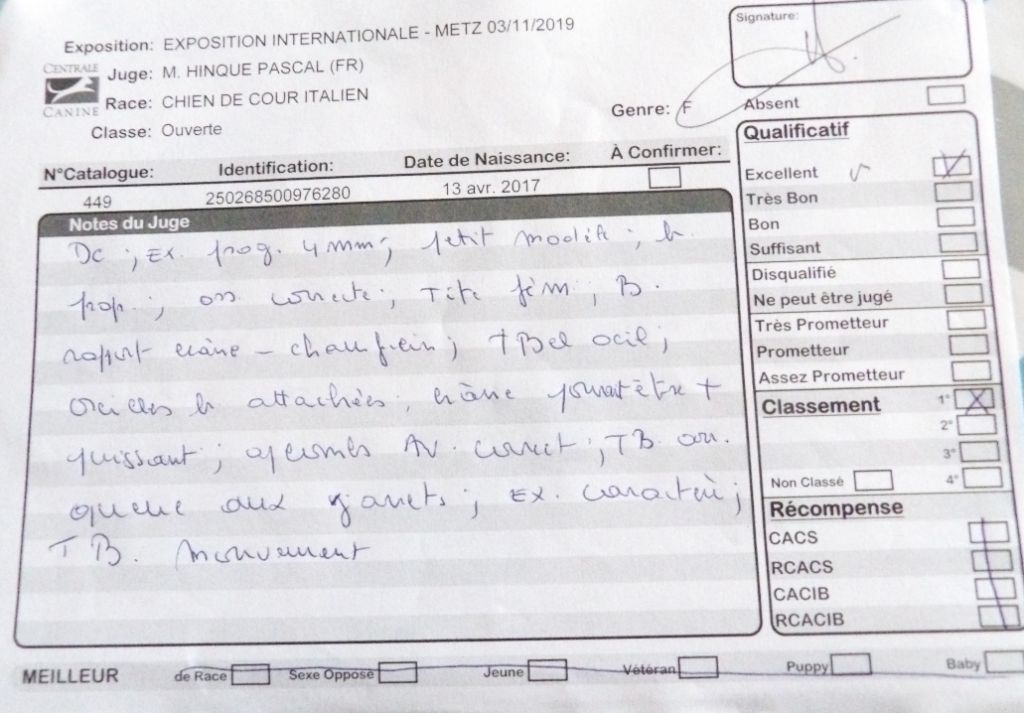 Exposition: EXPOSITION INTERNATIONALE - METZ 03/11/2019
CENTRALE
CANINE
Juge: M. HINQUE PASCAL (FR)
Race: CHIEN DE COUR ITALIEN
Genre: F
Classe: Ouverte
Signature:
Absent
N°Catalogue: Identification: Date de Naissance: À Confirmer:
449 250268500976280 13 avr. 2017
Notes du Juge
Dc ; Ex. prog. 4 mm ; petit modèle ; b.
prop ; oss correcte ; Tête fém ; B.
rapport crâne - chanfrein ; T Bel oeil ;
oreilles b attachées ; crâne pourrait être +
puissant ; aplombs AV. correct ; TB arr.
queue aux jarrets ; Ex. caractère ;
T B. mouvement
Qualificatif
Excellent
Très Bon
Bon
Suffisant
Disqualifié
Ne peut être jugé
Très Prometteur
Prometteur
Assez Prometteur
Classement 1°
2°
3°
Non Classé 4°
Récompense
CACS
RCACS
CACIB
RCACIB
MEILLEUR de Race Sexe Opposé Jeune Vétéran Puppy Baby